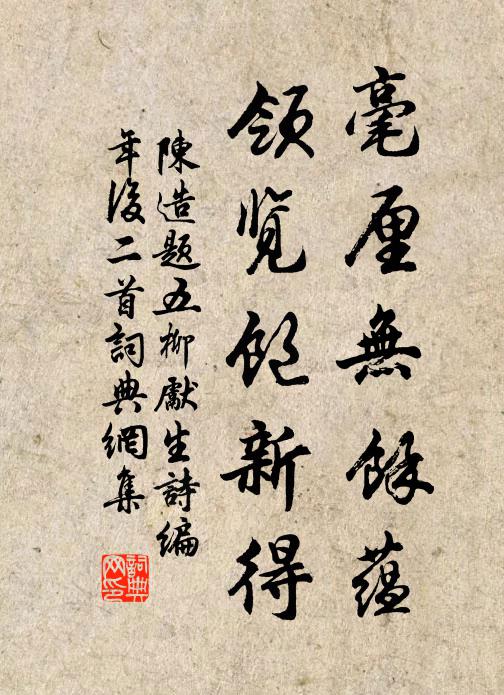 毫厘無餘蕴
領览飽新得
陳造題五柳獻生詩编
年後二首詞典網集
詞典网印